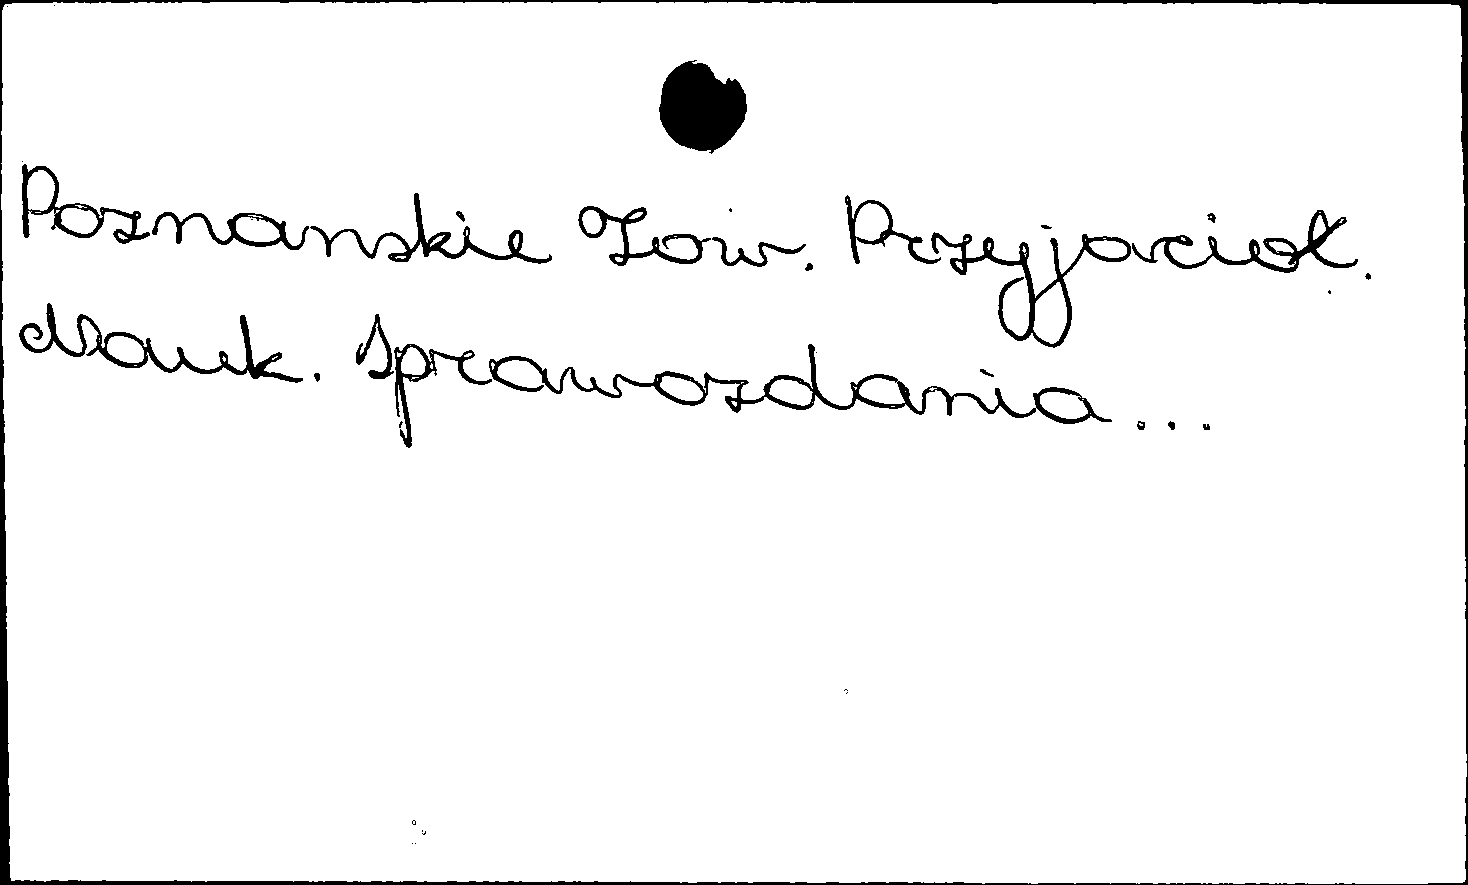 Poznanskie Tow. Przyjaciół.
Nauk. Sprawozdania...